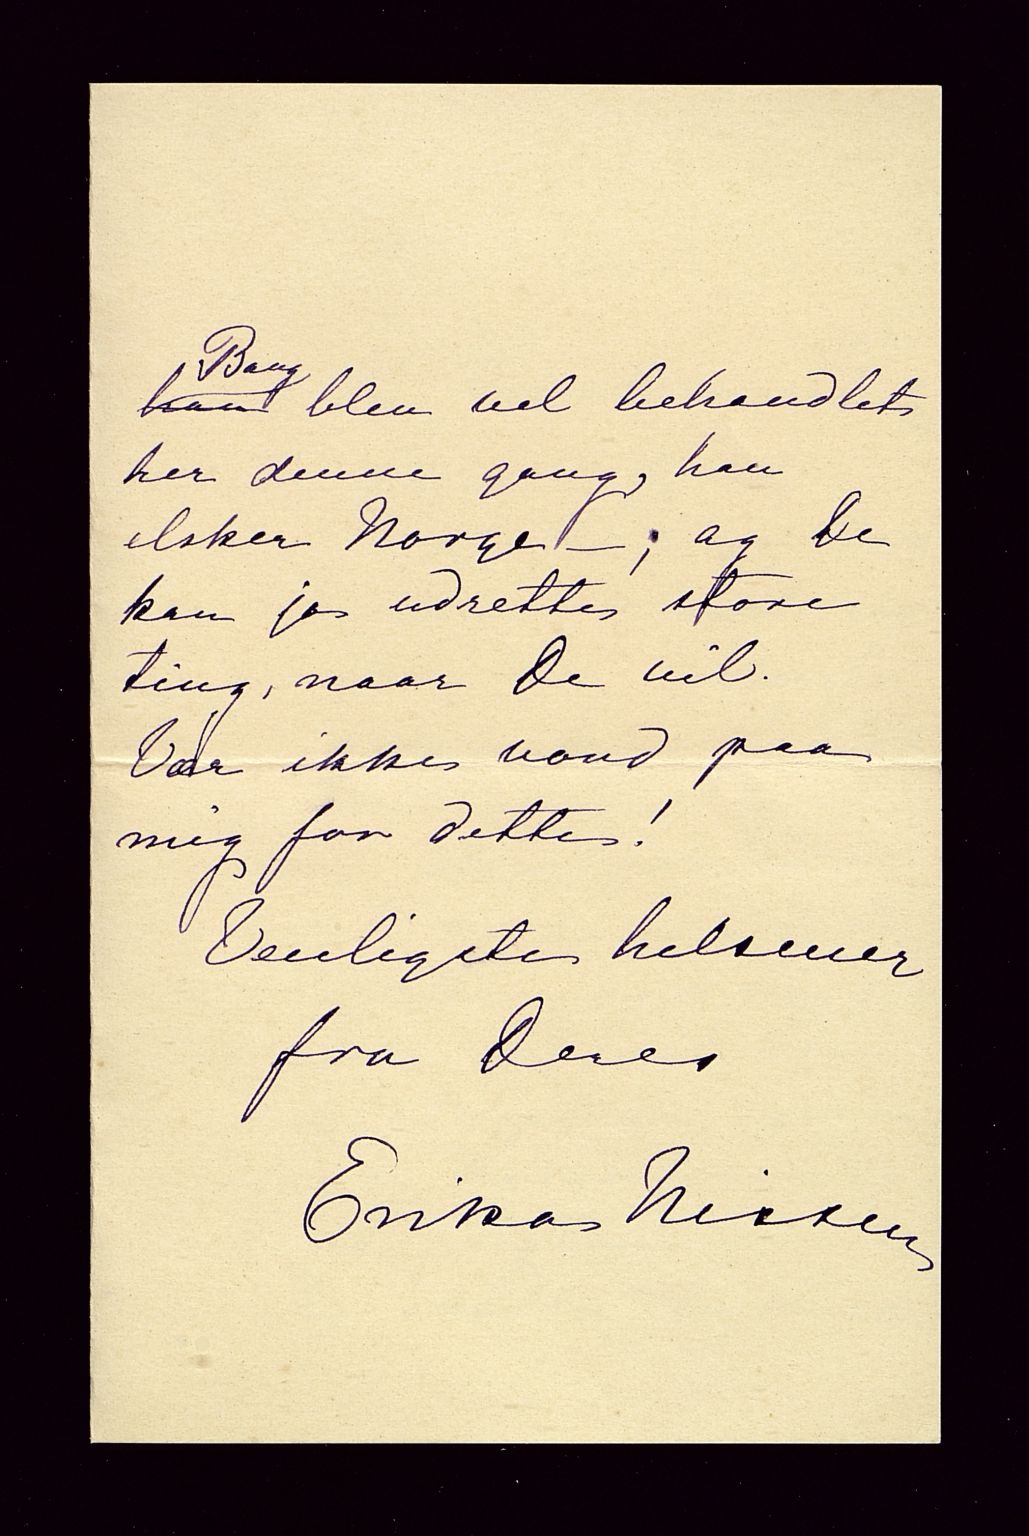 Bang
han blev vel behandlet
her denne gang, han
elsker Norge – ; og De
kan jo udrette store
ting, naar De vil.
Vær ikke vond paa
mig for dette!
Venligste hilsener
fra Deres
Erika Nissen